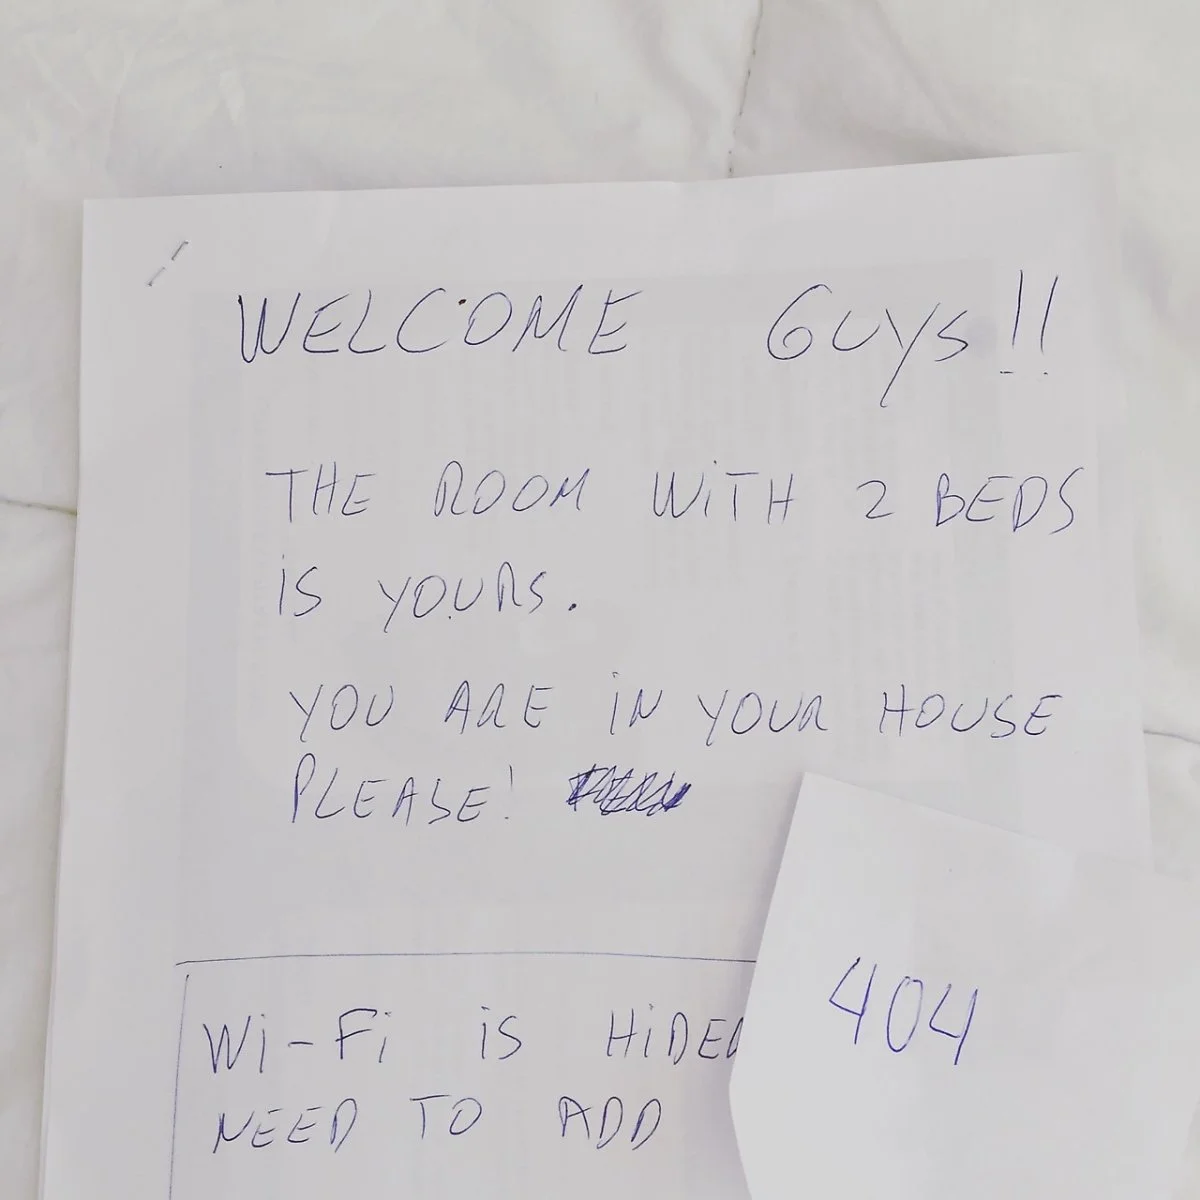 WELCOME GUYS!!
THE ROOM WITH 2 BEDS
IS YOURS.
YOU ARE IN YOUR HOUSE
PLEASE!
Wi-Fi iS HiDED
NEED TO ADD
404